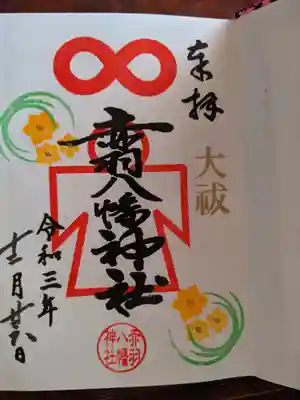 奉拝
大祓
赤羽八幡神社
令和三年
十二月
赤羽
八幡
神社